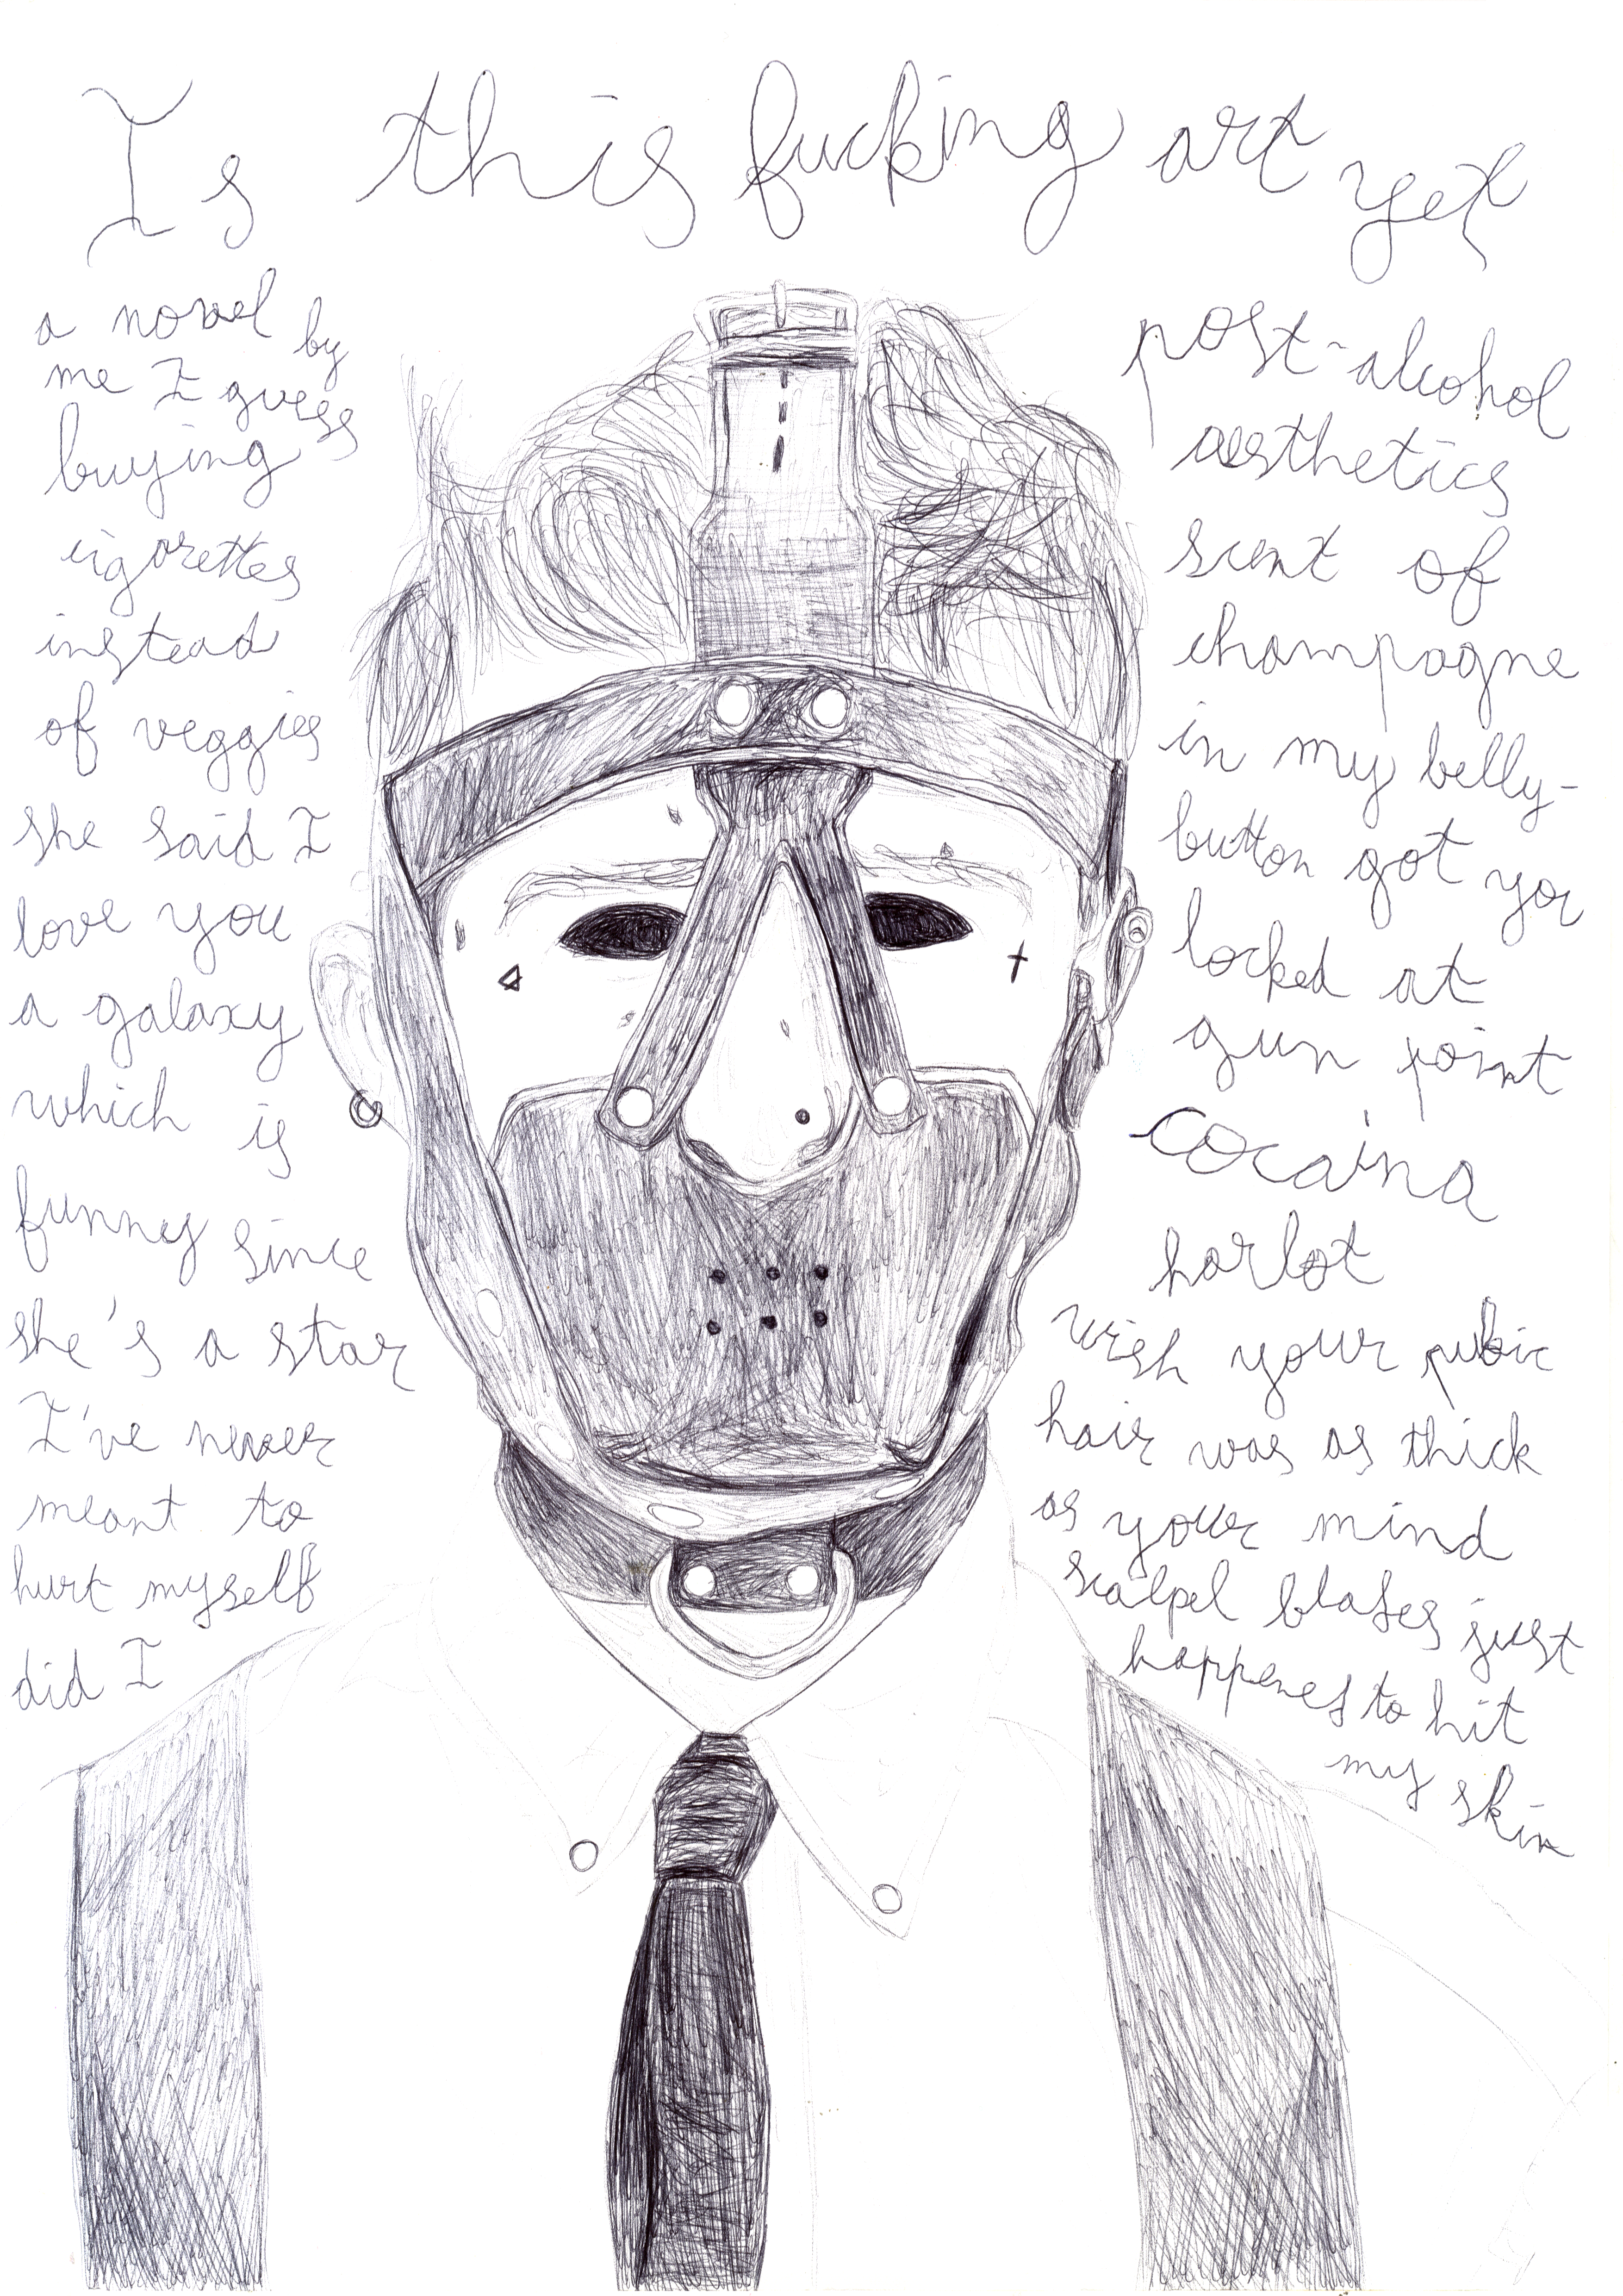 Is this fucking art yet
a novel by
me I guess
buying
cigarettes
instead
of veggies
she said I
love you
a galaxy
which is
funny since
she's a star
I've never
meant to
hurt myself
did I
post-alcohol
aesthetics
scent of
champagne
in my belly-
button got you
locked at
gun point
cocaina
harlot
wish your pubic
hair was as thick
as your mind
scalpel blades just
happened to hit
my skin